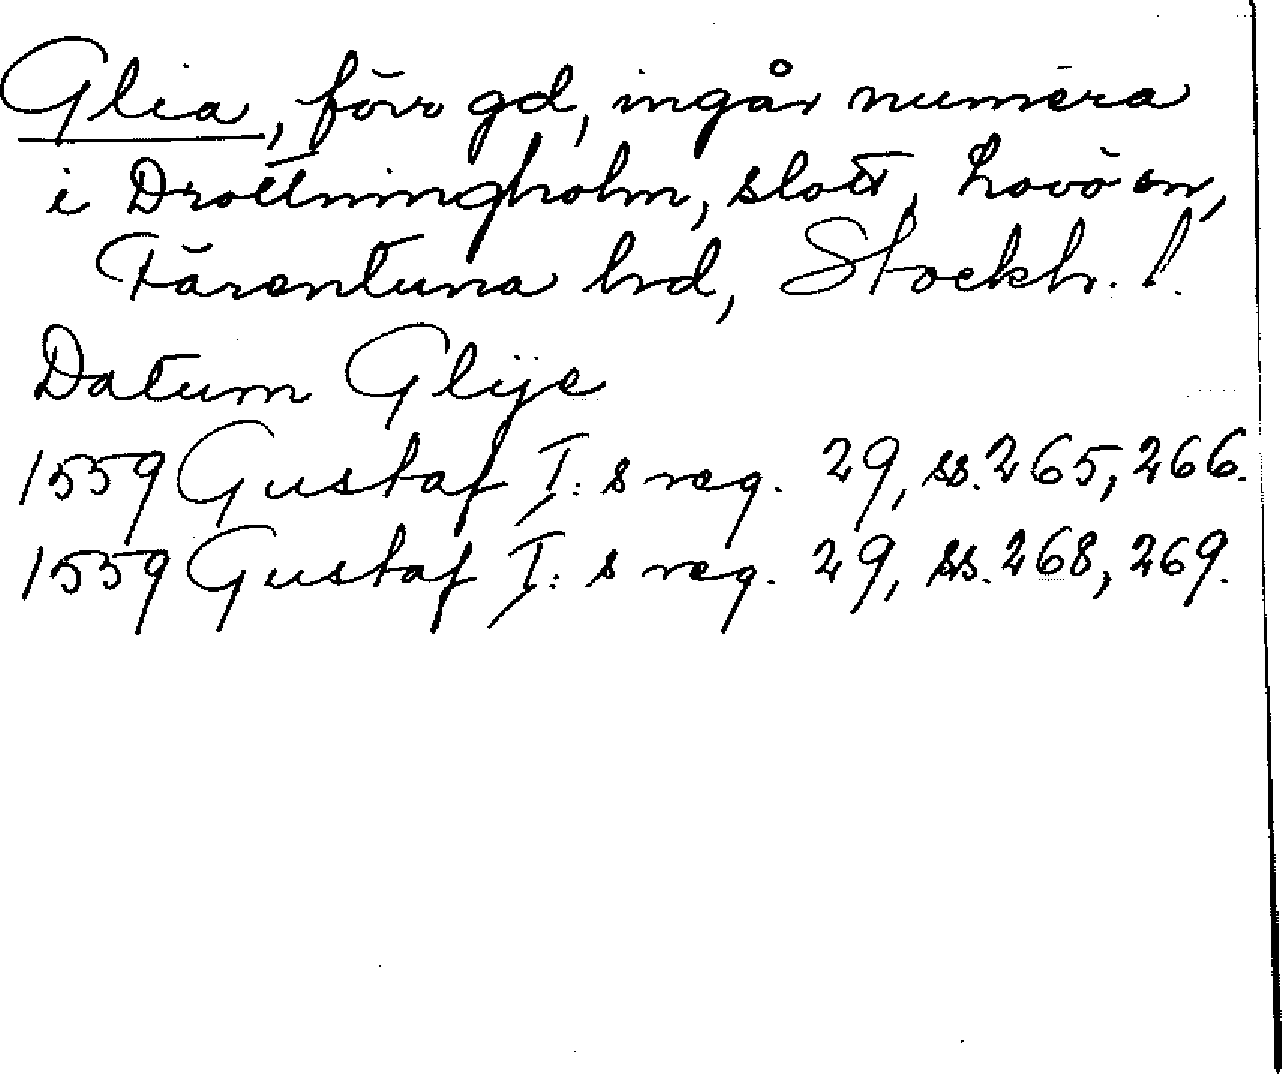 Glia, förr gd, ingår numera
i Drottningholm, slott, Lovö sn,
Färentuna hrd, Stockh. l.
Datum Glije
1559 Gustaf I:s reg. 29, ss. 265, 266.
1559 Gustaf I:s reg. 29, ss. 268, 269.